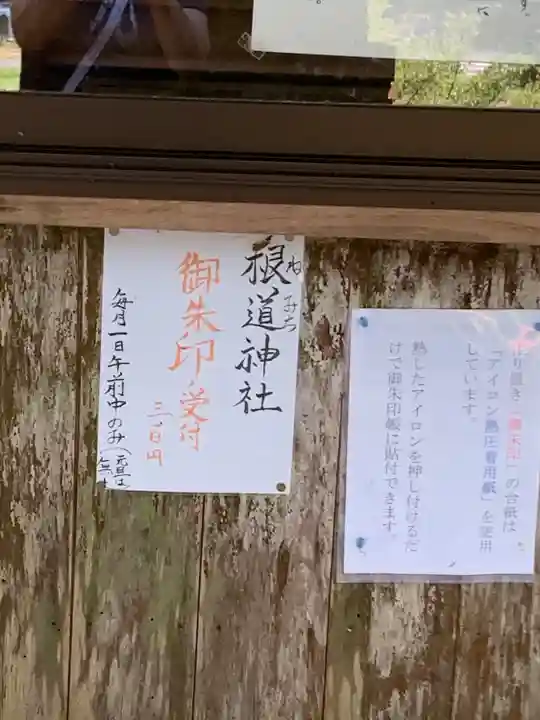 根道神社
ねみち
御朱印受付
三百円
毎月一日午前中のみ(元旦は
無し
置き「御朱印」の台紙は
「アイロン熱圧着用紙」を使用
しています。
熱したアイロンを押し付けるだ
けで御朱印帳に貼付できます。